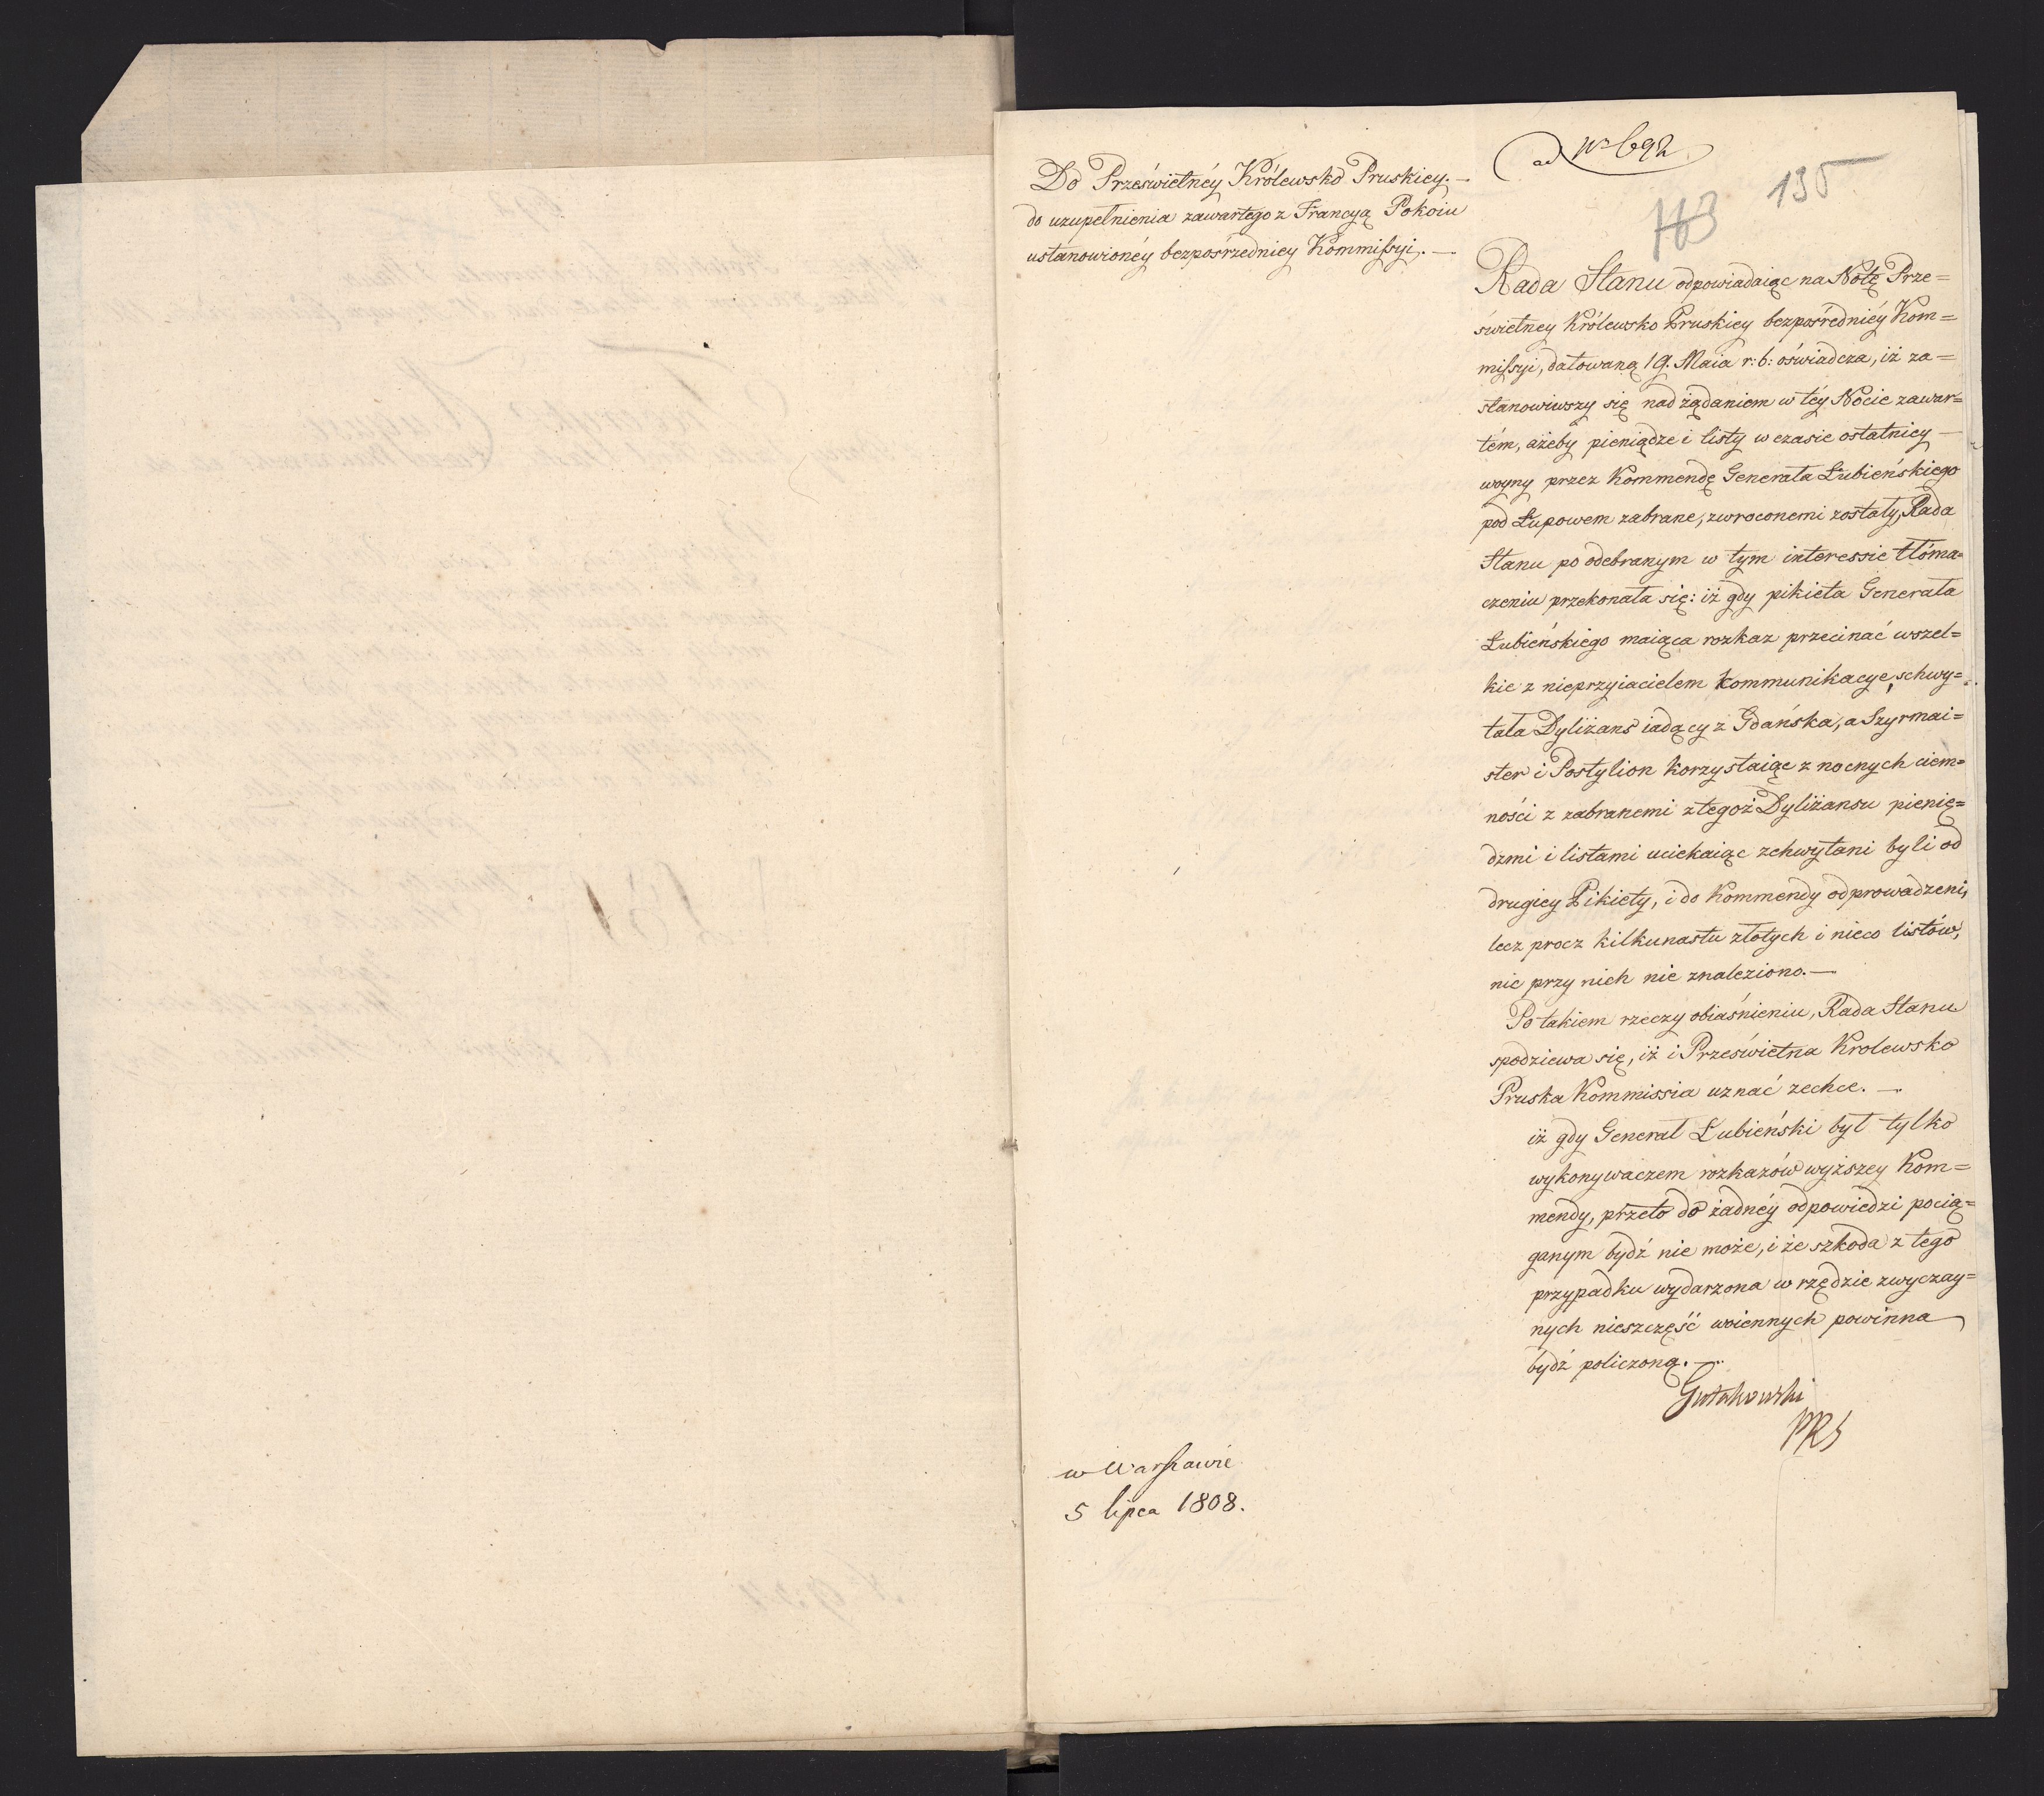 ad Nº 692
135
763
Do Prześwietnéy Królewsko Pruskiey. —
do uzupełnienia zawartego z Francyą Pokoiu
ustanowionéy bezpośrzedniey Kommissyi. —
Rada Stanu odpowiadaiąc na Notę Prze=
świetney Królewsko Pruskiey bezpośredniéy Kom=
missyi, datowaną 19. Maia r: b: oświadcza, iż za=
stanowiwszy się nad żądaniem w téy Nocie zawar=
tém, ażeby pieniądze i listy w czasie ostatniey —
woyny przez Kommendę Generała Łubieńskiego
pod Łupowem zabrane, zwroconemi zostały, Rada
Stanu po odebranym w tym interessie tłóma=
czeniu przekonała się: iż gdy pikieta Generała
Łubieńskiego maiąca rozkaz przecinać wszel=
kie z nieprzyiacielem kommunikacye, schwy=
tała Dyliżans iadący z Gdańska, a Szyrmai=
ster i Postylion korzystaiąc z nocnych ciem=
ności z zabranemi z tegoż Dyliżansu pienię=
dzmi i listami uciekaiąc zchwytani byli od
drugiey Pikiety, i do Kommendy odprowadzeni,
lecz procz kilkunastu złotych i nieco listów,
nic przy nich nie znaleziono. —
Po takiem rzeczy obiaśnieniu, Rada Stanu
spodziewa się, iż i Prześwietna Krolewsko
Pruska Kommissia uznać zechce. —
iż gdy Generał Łubieński był tylko
wykonywaczem rozkazów wyższey Kom=
mendy, przeto do żadnéy odpowiedzi pocią=
ganym bydź nie może, i że szkoda z tego
przypadku wydarzona w rzędzie zwyczay=
nych nieszczęść woiennych powinna
bydź policzoną. —
Gutakowski
PRS
w Warszawie
5 lipca 1808.